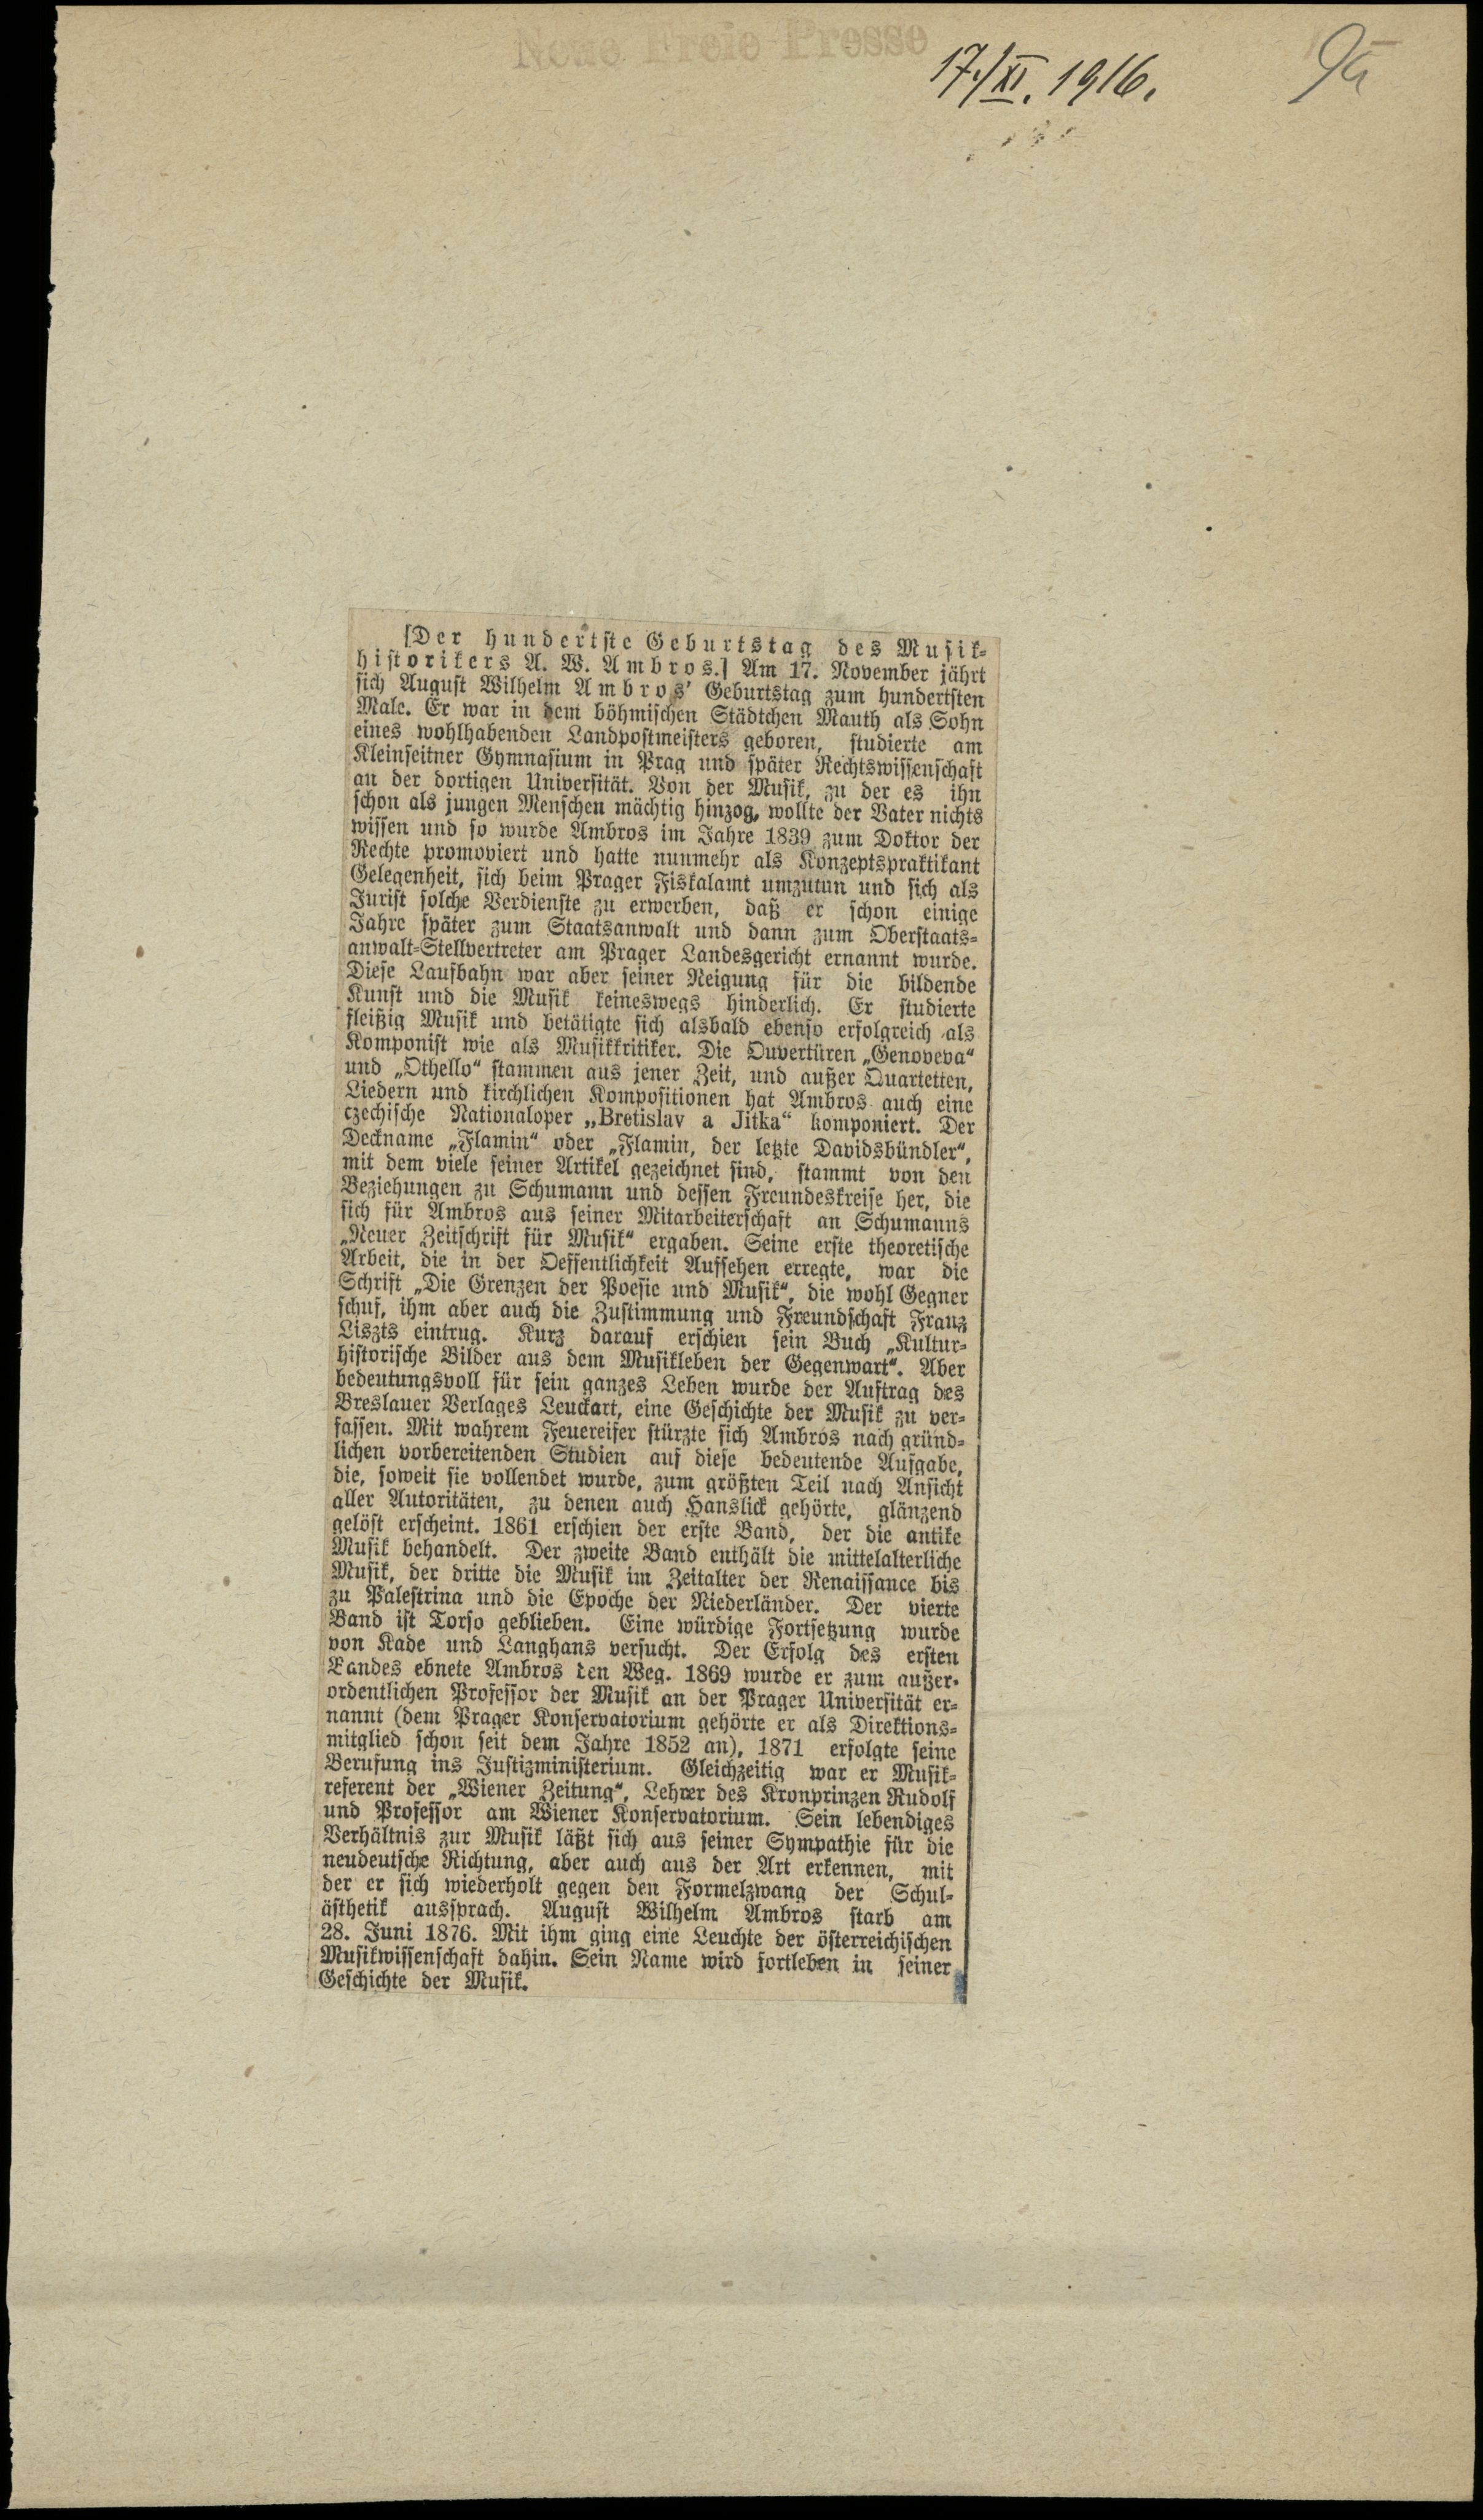 Neue Freie Presse
17./XI. 1916.
[Der hundertste Geburtstag des Musik-
historikers A. W. Ambros.] Am 17. November jährt
sich August Wilhelm Ambros' Geburtstag zum hundertsten
Male. Er war in dem böhmischen Städtchen Mauth als Sohn
eines wohlhabenden Landpostmeisters geboren, studierte am
Kleinseitner Gymnasium in Prag und später Rechtswissenschaft
an der dortigen Universität. Von der Musik, zu der es ihn
schon als jungen Menschen mächtig hinzog, wollte der Vater nichts
wissen und so wurde Ambros im Jahre 1839 zum Doktor der
Rechte promoviert und hatte nunmehr als Konzeptspraktikant
Gelegenheit, sich beim Prager Fiskalamt umzutun und sich als
Jurist solche Verdienste zu erwerben, daß er schon einige
Jahre später zum Staatsanwalt und dann zum Oberstaats-
anwalt-Stellvertreter am Prager Landesgericht ernannt wurde.
Diese Laufbahn war aber seiner Neigung für die bildende
Kunst und die Musik keineswegs hinderlich. Er studierte
fleißig Musik und betätigte sich alsbald ebenso erfolgreich als
Komponist wie als Musikkritiker. Die Ouvertüren „Genoveva“
und „Othello“ stammen aus jener Zeit, und außer Quartetten,
Liedern und kirchlichen Kompositionen hat Ambros auch eine
czechische Nationaloper „Bretislav a Jitka“ komponiert. Der
Deckname „Flamin“ oder „Flamin, der letzte Davidsbündler“,
mit dem viele seiner Artikel gezeichnet sind, stammt von den
Beziehungen zu Schumann und dessen Freundeskreise her, die
sich für Ambros aus seiner Mitarbeiterschaft an Schumanns
„Neuer Zeitschrift für Musik“ ergaben. Seine erste theoretische
Arbeit, die in der Oeffentlichkeit Aufsehen erregte, war die
Schrift „Die Grenzen der Poesie und Musik“, die wohl Gegner
schuf, ihm aber auch die Zustimmung und Freundschaft Franz
Liszts eintrug. Kurz darauf erschien sein Buch „Kultur-
historische Bilder aus dem Musikleben der Gegenwart“. Aber
bedeutungsvoll für sein ganzes Leben wurde der Auftrag des
Breslauer Verlages Leuckart, eine Geschichte der Musik zu ver-
fassen. Mit wahrem Feuereifer stürzte sich Ambros nach gründ-
lichen vorbereitenden Studien auf diese bedeutende Aufgabe,
die, soweit sie vollendet wurde, zum größten Teil nach Ansicht
aller Autoritäten, zu denen auch Hanslick gehörte, glänzend
gelöst erscheint. 1861 erschien der erste Band, der die antike
Musik behandelt. Der zweite Band enthält die mittelalterliche
Musik, der dritte die Musik im Zeitalter der Renaissance bis
zu Palestrina und die Epoche der Niederländer. Der vierte
Band ist Torso geblieben. Eine würdige Fortsetzung wurde
von Kade und Langhans versucht. Der Erfolg des ersten
Bandes ebnete Ambros den Weg. 1869 wurde er zum außer-
ordentlichen Professor der Musik an der Prager Universität er-
nannt (dem Prager Konservatorium gehörte er als Direktions-
mitglied schon seit dem Jahre 1852 an), 1871 erfolgte seine
Berufung ins Justizministerium. Gleichzeitig war er Musik-
referent der „Wiener Zeitung“, Lehrer des Kronprinzen Rudolf
und Professor am Wiener Konservatorium. Sein lebendiges
Verhältnis zur Musik läßt sich aus seiner Sympathie für die
neudeutsche Richtung, aber auch aus der Art erkennen, mit
der er sich wiederholt gegen den Formelzwang der Schul-
ästhetik aussprach. August Wilhelm Ambros starb am
28. Juni 1876. Mit ihm ging eine Leuchte der österreichischen
Musikwissenschaft dahin. Sein Name wird fortleben in seiner
Geschichte der Musik.